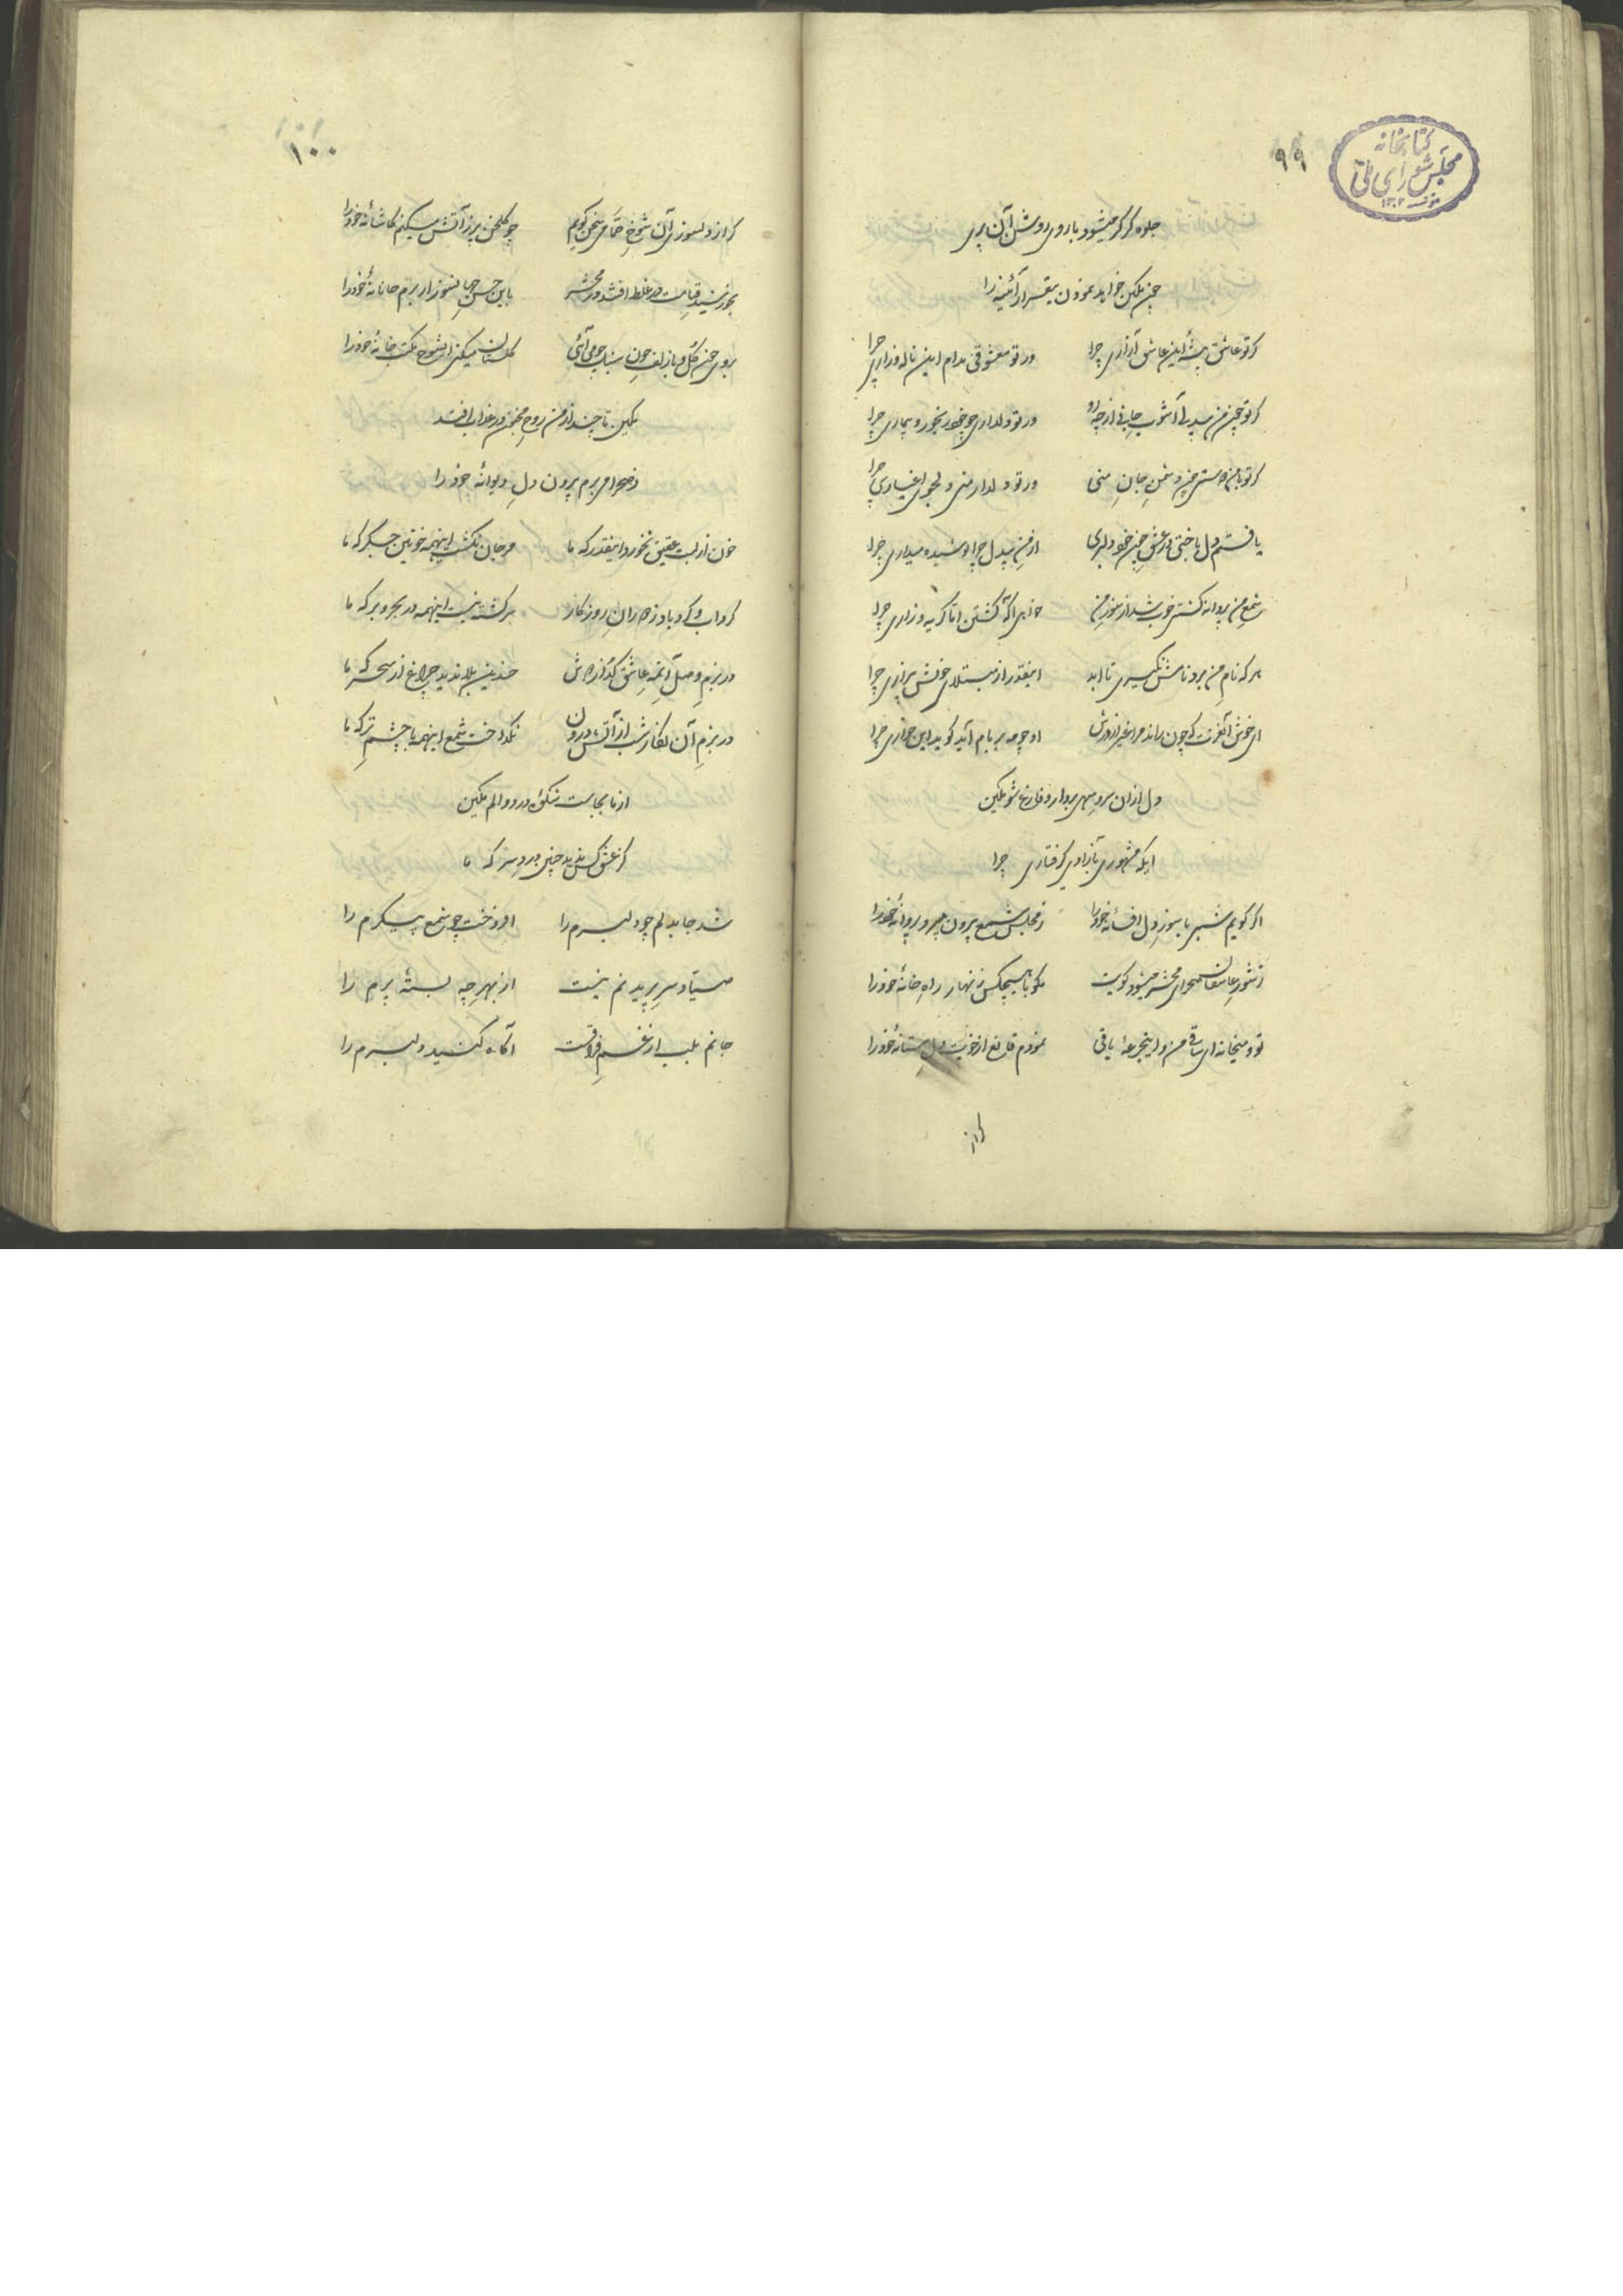 کتابخانه
مجلس شورای ملی
۹۹
جلوه گر گر میشود با روی روشن آن پری
چین تمکین خواهد نمودن بیقرار آئینه را
گر تو عاشق پیشهٔ این عاشق آزاری چرا
ور تو معشوقی مدام این ناله و زاری چرا
گر تو چون من بیدلی آشوب
ور تو دلداری چو خود رنجور و بیماری چرا
گر تو با من دوستی چون دشمن جان منی
ور تو دلدار منی دلجوی اغیاری چرا
یافتم دل باختی در عشق چون خود دلبری
از من بیدل چرا پوشیده میداری چرا
شمع من پروانه کشتن خوب شد از سوز من
گریه و زاری چرا
هر که نام من برد نامش نگیری تا ابد
اینقدر از مبتلای خویش بیزاری چرا
ای خوش آنعزت که چون راند مرا غیر از درش
او چو مه بر بام آید گوید این خواری چرا
دل ازان سرو سهی بردار و فارغ شو تمکین
ایکه مشهوری بآزادی گرفتاری چرا
اگر گویم شبی با سوز دل افسانهٔ خود را
ز مجلس شمع بیرون میبرد پروانهٔ خود را
ز شور عاشقان صحرای محشر میشود کویت
مگو با هیچکس زنهار راه خانهٔ خود را
تو و میخانه ای ساقی من و اینجرعهٔ باقی
نمودم قانع از خونت دل مستانهٔ خود را
۱۰۰
گر از دلسوزی آن شوخ حمامی سخن گویم
چو گلخن پر ز آتش میکنم کاشانهٔ خود را
بخورشید قیامت در غلط افتند در محشر
باین حسن جهانسوز ار برم جانانهٔ خود را
بروی چون گل و با زلف چون سنبل چو می آئی
گلستان میکنی ای شوخ مکتب خانهٔ خود را
تمکین تا چند از من روح مجنون در عذاب افتد
ز صحرا می برم بیرون دل دیوانهٔ خود را
خون از لبت عقیق نخورد اینقدر که ما
مرجان نگشت اینهمه خونین جگر که ما
گرداب و گردباد ز دوران روزگار
سرگشته نیست اینهمه در بحر و بر که ما
در بزم وصل آنمه عاشق گداز دوش
چندین بلا ندید چراغ از سحر که ما
در بزم آن نگار شب از آتش درون
نگداخت شمع اینهمه با چشم تر که ما
از ما بجاست شکوهٔ درد و الم تمکین
کز عشق کس ندید چنین دردسر که ما
شد جا بدلم چو دلبرم را
افروخت چو شمع پیکرم را
صیاد سر پریدنم نیست
از بهر چه بستهٔ پرم را
جانم بلب از غم فراقت
آگاه کنید دلبرم را